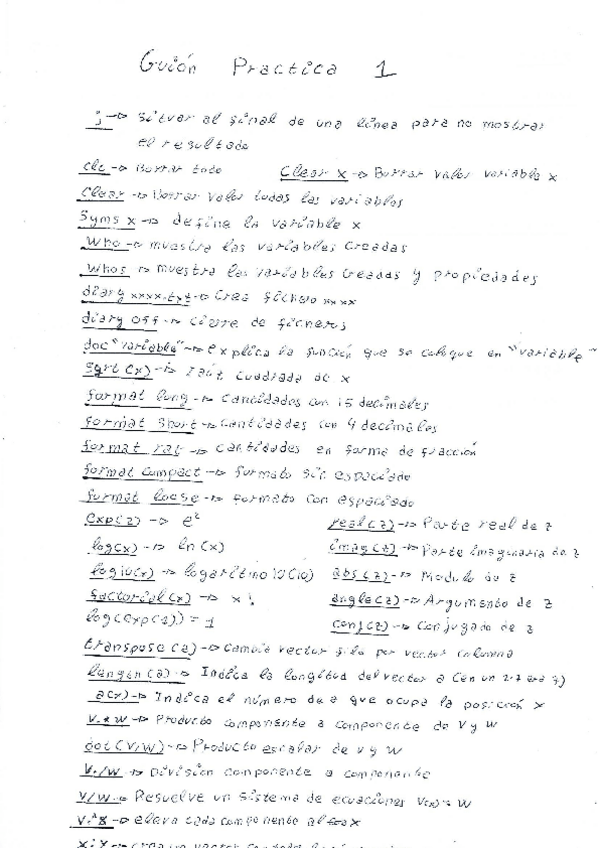 Guión Practica 1
; -> Situar al final de una linea para no mostrar
el resultado
clc -> Borrar todo Clear x -> Borrar valor variable x
Clear -> Borrar valor todas las variables
Syms x -> define la variable x
Who -> muestra las variables Creadas
Whos -> muestra las variables Creadas y propiedades
diary xxxx.txt -> Crea fichero xxxx
diary off -> Cierre de ficheros
doc "variable" -> explica la función que se coloque en "variable"
Sqrt(x) -> raiz cuadrada de x
format long -> Cantidades con 15 decimales
format short -> Cantidades con 4 decimales
format rat -> Cantidades en forma de fracción
format compact -> formato sin espaciado
format loose -> formato con espaciado
exp(z) -> e^z real(z) -> Parte real de z
log(x) -> ln(x) imag(z) -> Parte imaginaria de z
log10(x) -> logaritmo 10 (10) abs(z) -> Modulo de z
factorial(x) -> x! angle(z) -> Argumento de z
log(exp(1)) = 1 conj(z) -> Conjugado de z
transpose(a) -> Cambia vector fila por vector columna
length(a) -> Indica la longitud del vector a
a(x) -> Indica el número de a que ocupa la posición x
v.*w -> Producto componente a componente de v y w
dot(v,w) -> Producto escalar de v y w
v./w -> División componente a componente
v/w -> Resuelve un sistema de ecuaciones
v.^x -> eleva cada componente a x
x:x -> crea un vector